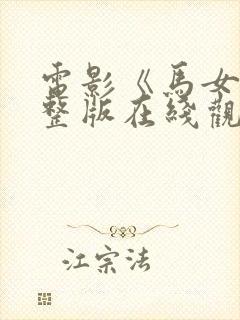 電影《馬女
整版在綫觀
江宗法